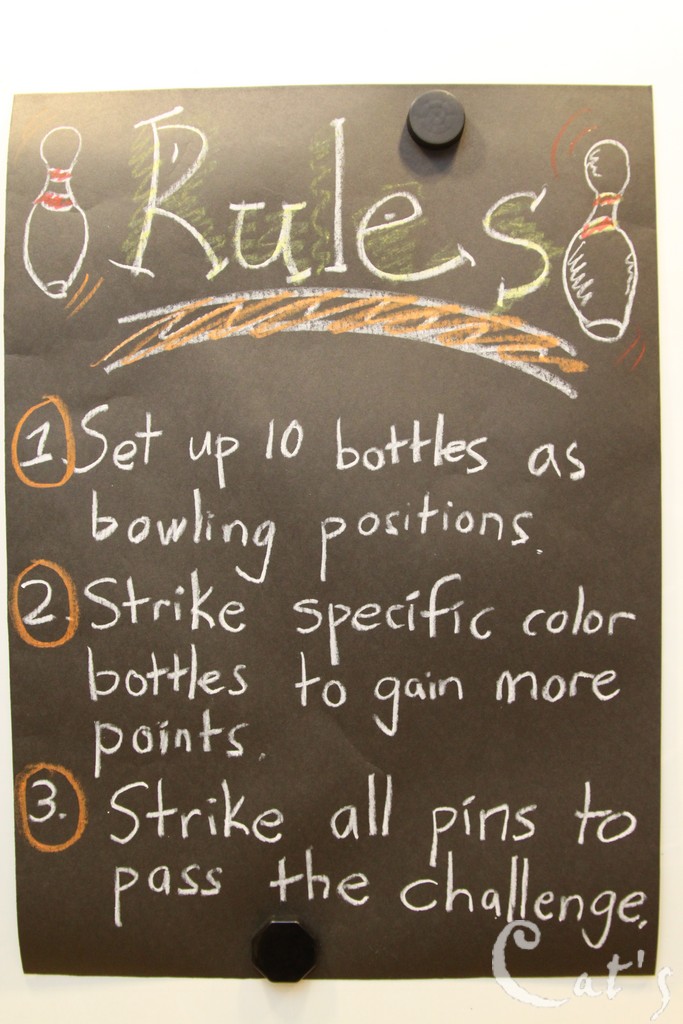 Rules
1. Set up 10 bottles as
bowling positions.
2. Strike specific color
bottles to gain more
points.
3. Strike all pins to
pass the challenge.
Cat's